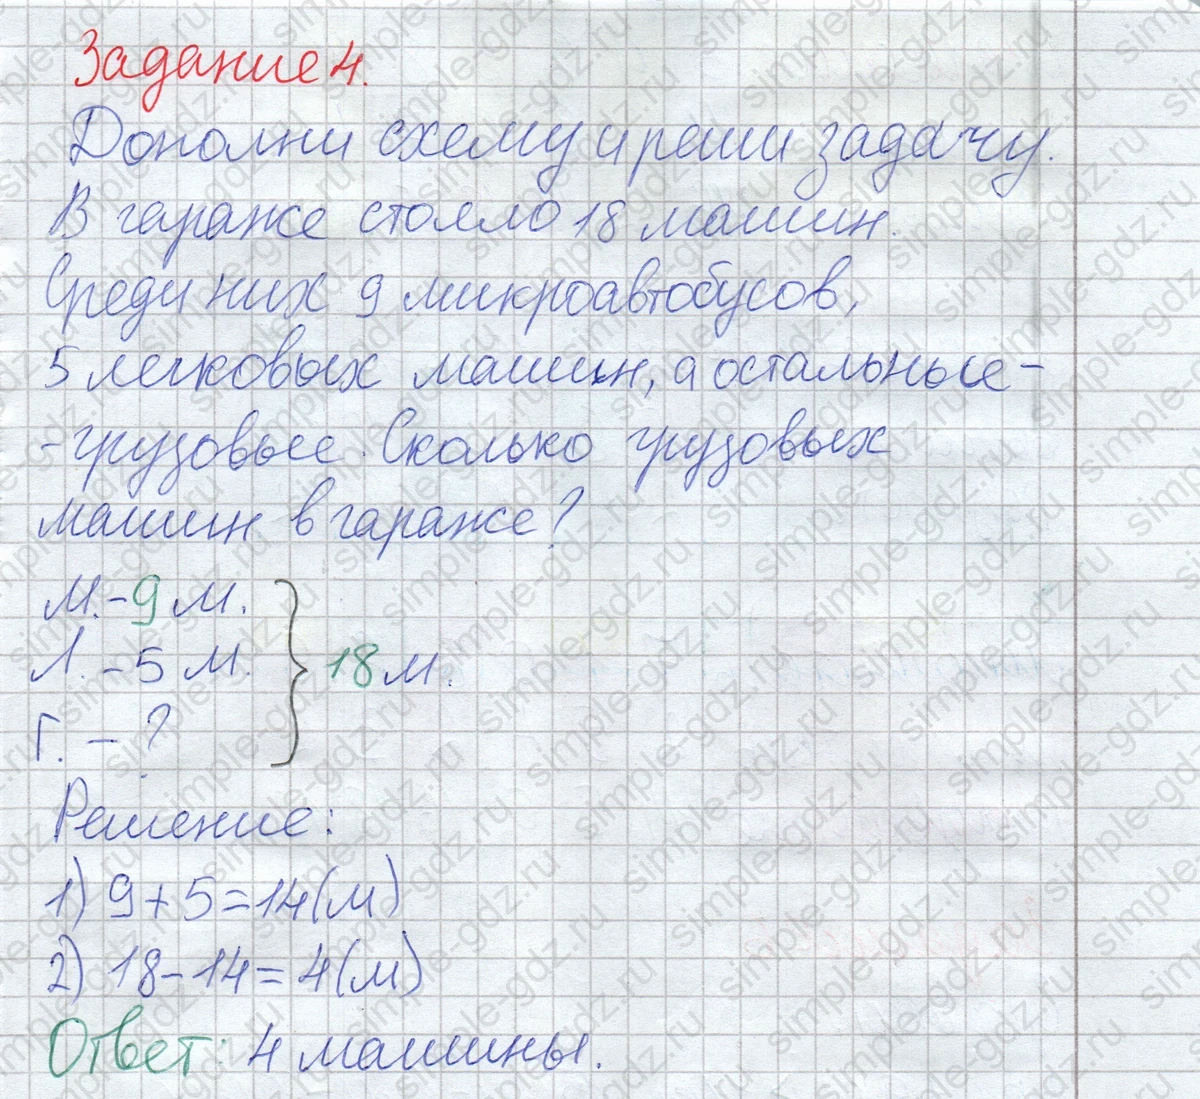 Задание 4.
Дополни схему и реши задачу.
В гараже стояло 18 машин.
Среди них 9 микроавтобусов,
5 легковых машин, а остальные -
- грузовые. Сколько грузовых
машин в гараже?
М. - 9 м.
Л. - 5 м. 18 м.
Г. - ?
Решение:
1) 9 + 5 = 14 (м)
2) 18 - 14 = 4 (м)
Ответ: 4 машины.
simple-gdz.ru